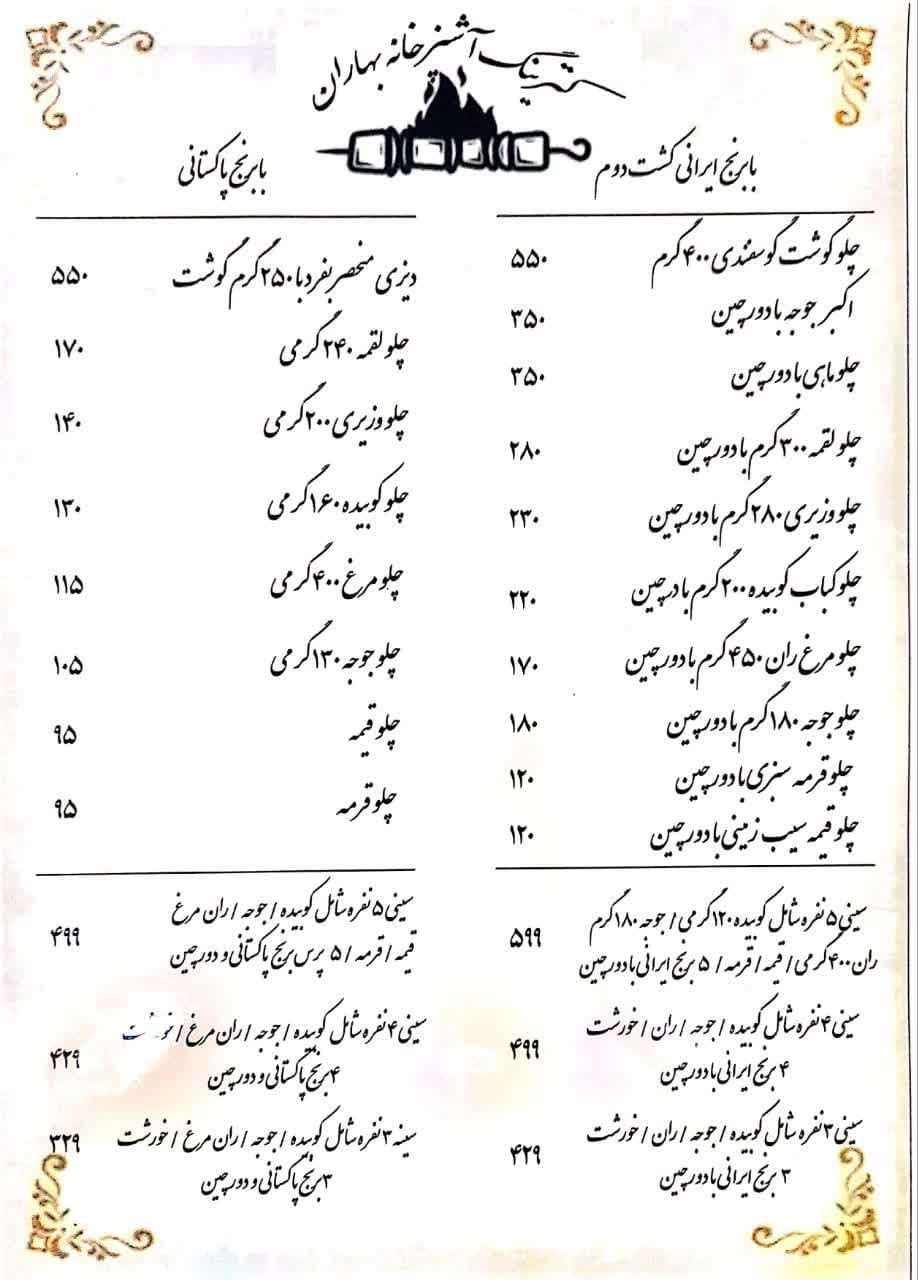 کترینگ آشپزخانه بهاران
با برنج ایرانی کشت دوم
چلو گوشت گوسفندی ۴۰۰ گرم ۵۵۰
اکبر جوجه با دورچین ۳۵۰
چلو ماهی با دورچین ۳۵۰
چلو لقمه ۳۰۰ گرم با دورچین ۲۸۰
چلو وزیری ۲۸۰ گرم با دورچین ۲۳۰
چلو کباب کوبیده ۲۰۰ گرم با درچین ۲۲۰
چلو مرغ ران ۴۵۰ گرم با دورچین ۱۷۰
چلو جوجه ۱۸۰ گرم با دورچین ۱۸۰
چلو قرمه سبزی با دورچین ۱۲۰
چلو قیمه سیب زمینی با دورچین ۱۲۰
سینی ۵ نفره شامل کوبیده ۱۲۰ گرمی / جوجه ۱۸۰ گرم
ران ۴۰۰ گرمی / قیمه / قرمه / ۵ برنج ایرانی با دورچین ۵۹۹
سینی ۴ نفره شامل کوبیده / جوجه / ران / خورشت
۴ برنج ایرانی با دورچین ۴۹۹
سینی ۳ نفره شامل کوبیده / جوجه / ران / خورشت
۳ برنج ایرانی با دورچین ۴۲۹
با برنج پاکستانی
دیزی منحصر بفرد با ۲۵۰ گرم گوشت ۵۵۰
چلو لقمه ۲۴۰ گرمی ۱۷۰
چلو وزیری ۲۰۰ گرمی ۱۴۰
چلو کوبیده ۱۶۰ گرمی ۱۳۰
چلو مرغ ۴۰۰ گرمی ۱۱۵
چلو جوجه ۱۳۰ گرمی ۱۰۵
چلو قیمه ۹۵
چلو قرمه ۹۵
سینی ۵ نفره شامل کوبیده / جوجه / ران مرغ
قیمه / قرمه / ۵ پرس برنج پاکستانی و دورچین ۴۹۹
سینی ۴ نفره شامل کوبیده / جوجه / ران مرغ / خورشت
۴ برنج پاکستانی و دورچین ۴۲۹
سینه ۳ نفره شامل کوبیده / جوجه / ران مرغ / خورشت
۳ برنج پاکستانی و دورچین ۳۲۹